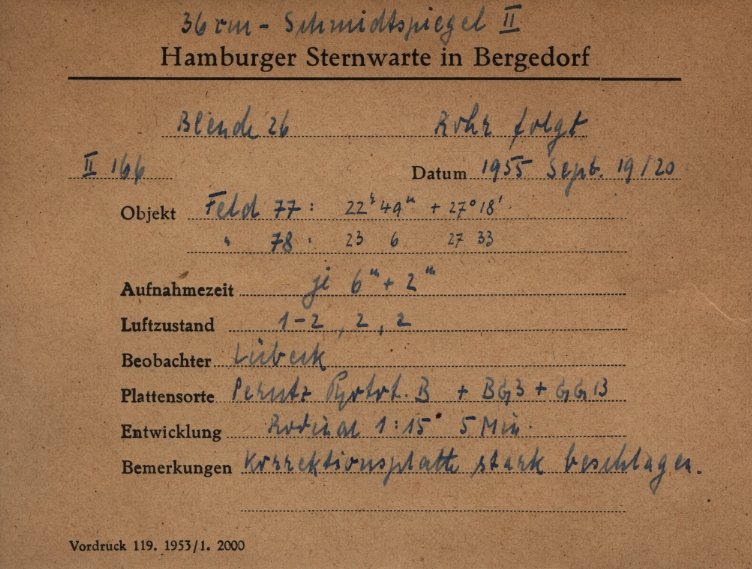 36cm - Schmidtspiegel II
Hamburger Sternwarte in Bergedorf
Blende 26 Rohr folgt
II 166 Datum 1955 Sept. 19/20
Objekt Feld 77: 22ʰ 49ᵐ + 27° 18'
" 78: 23 6 27 33
Aufnahmezeit je 6ᵐ + 2ᵐ
Luftzustand 1-2, 2, 2
Beobachter Lübeck
Plattensorte Perutz B + BG3 + GG13
Entwicklung Rodinal 1:15 5 Min.
Bemerkungen Korrektionsplatte stark beschlagen.
Vordruck 119. 1953/1. 2000